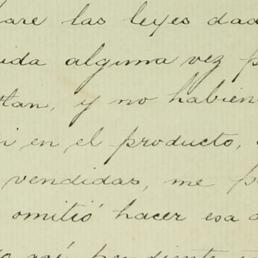 are las leyes dad
ida alguna vez p
tlan, y no habien
i en el producto,
vendidas, me p
omitió hacer esa
así pendiente